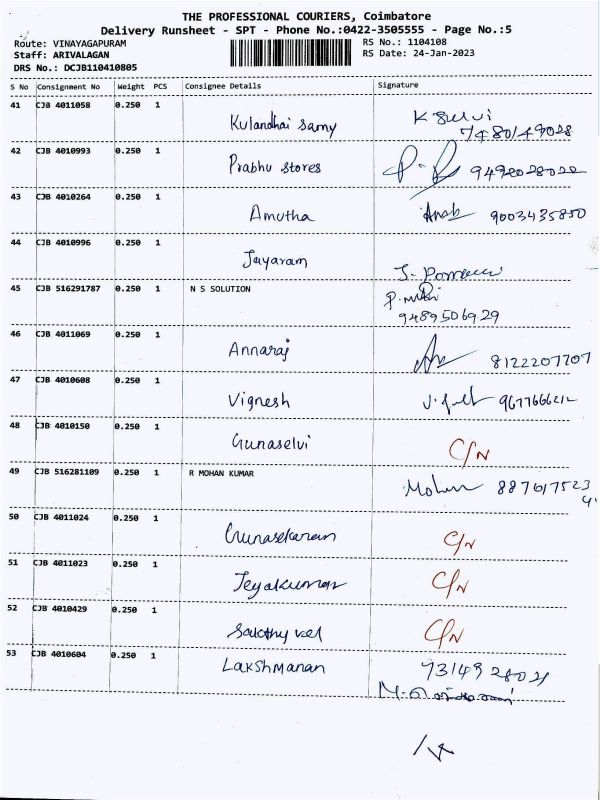 THE PROFESSIONAL COURIERS, Coimbatore
Delivery Runsheet - SPT - Phone No.:0422-3505555 - Page No.:5
Route: VINAYAGAPURAM
RS No.: 1104108
Staff: ARIVALAGAN
RS Date: 24-Jan-2023
DRS No.: DCJB110410805
S No Consignment No Weight PCS Consignee Details Signature
41 CJB 4011058 0.250 1 Kulandhai samy K Selvi
7480149028
42 CJB 4010993 0.250 1 Prabhu stores 9492028022
43 CJB 4010264 0.250 1 Amutha 9003435850
44 CJB 4010996 0.250 1 Jayaram
45 CJB 516291787 0.250 1 N S SOLUTION
9489506929
46 CJB 4011069 0.250 1 Annaraj 8122207707
47 CJB 4010608 0.250 1 Vignesh
48 CJB 4010150 0.250 1 Gunaselvi C/N
49 CJB 516281109 0.250 1 R MOHAN KUMAR Mohan 887617523
4
50 CJB 4011024 0.250 1 Gunasekaran C/N
51 CJB 4011023 0.250 1 Jeyakumar C/N
52 CJB 4010429 0.250 1 Sakthy vel C/N
53 CJB 4010604 0.250 1 Lakshmanan